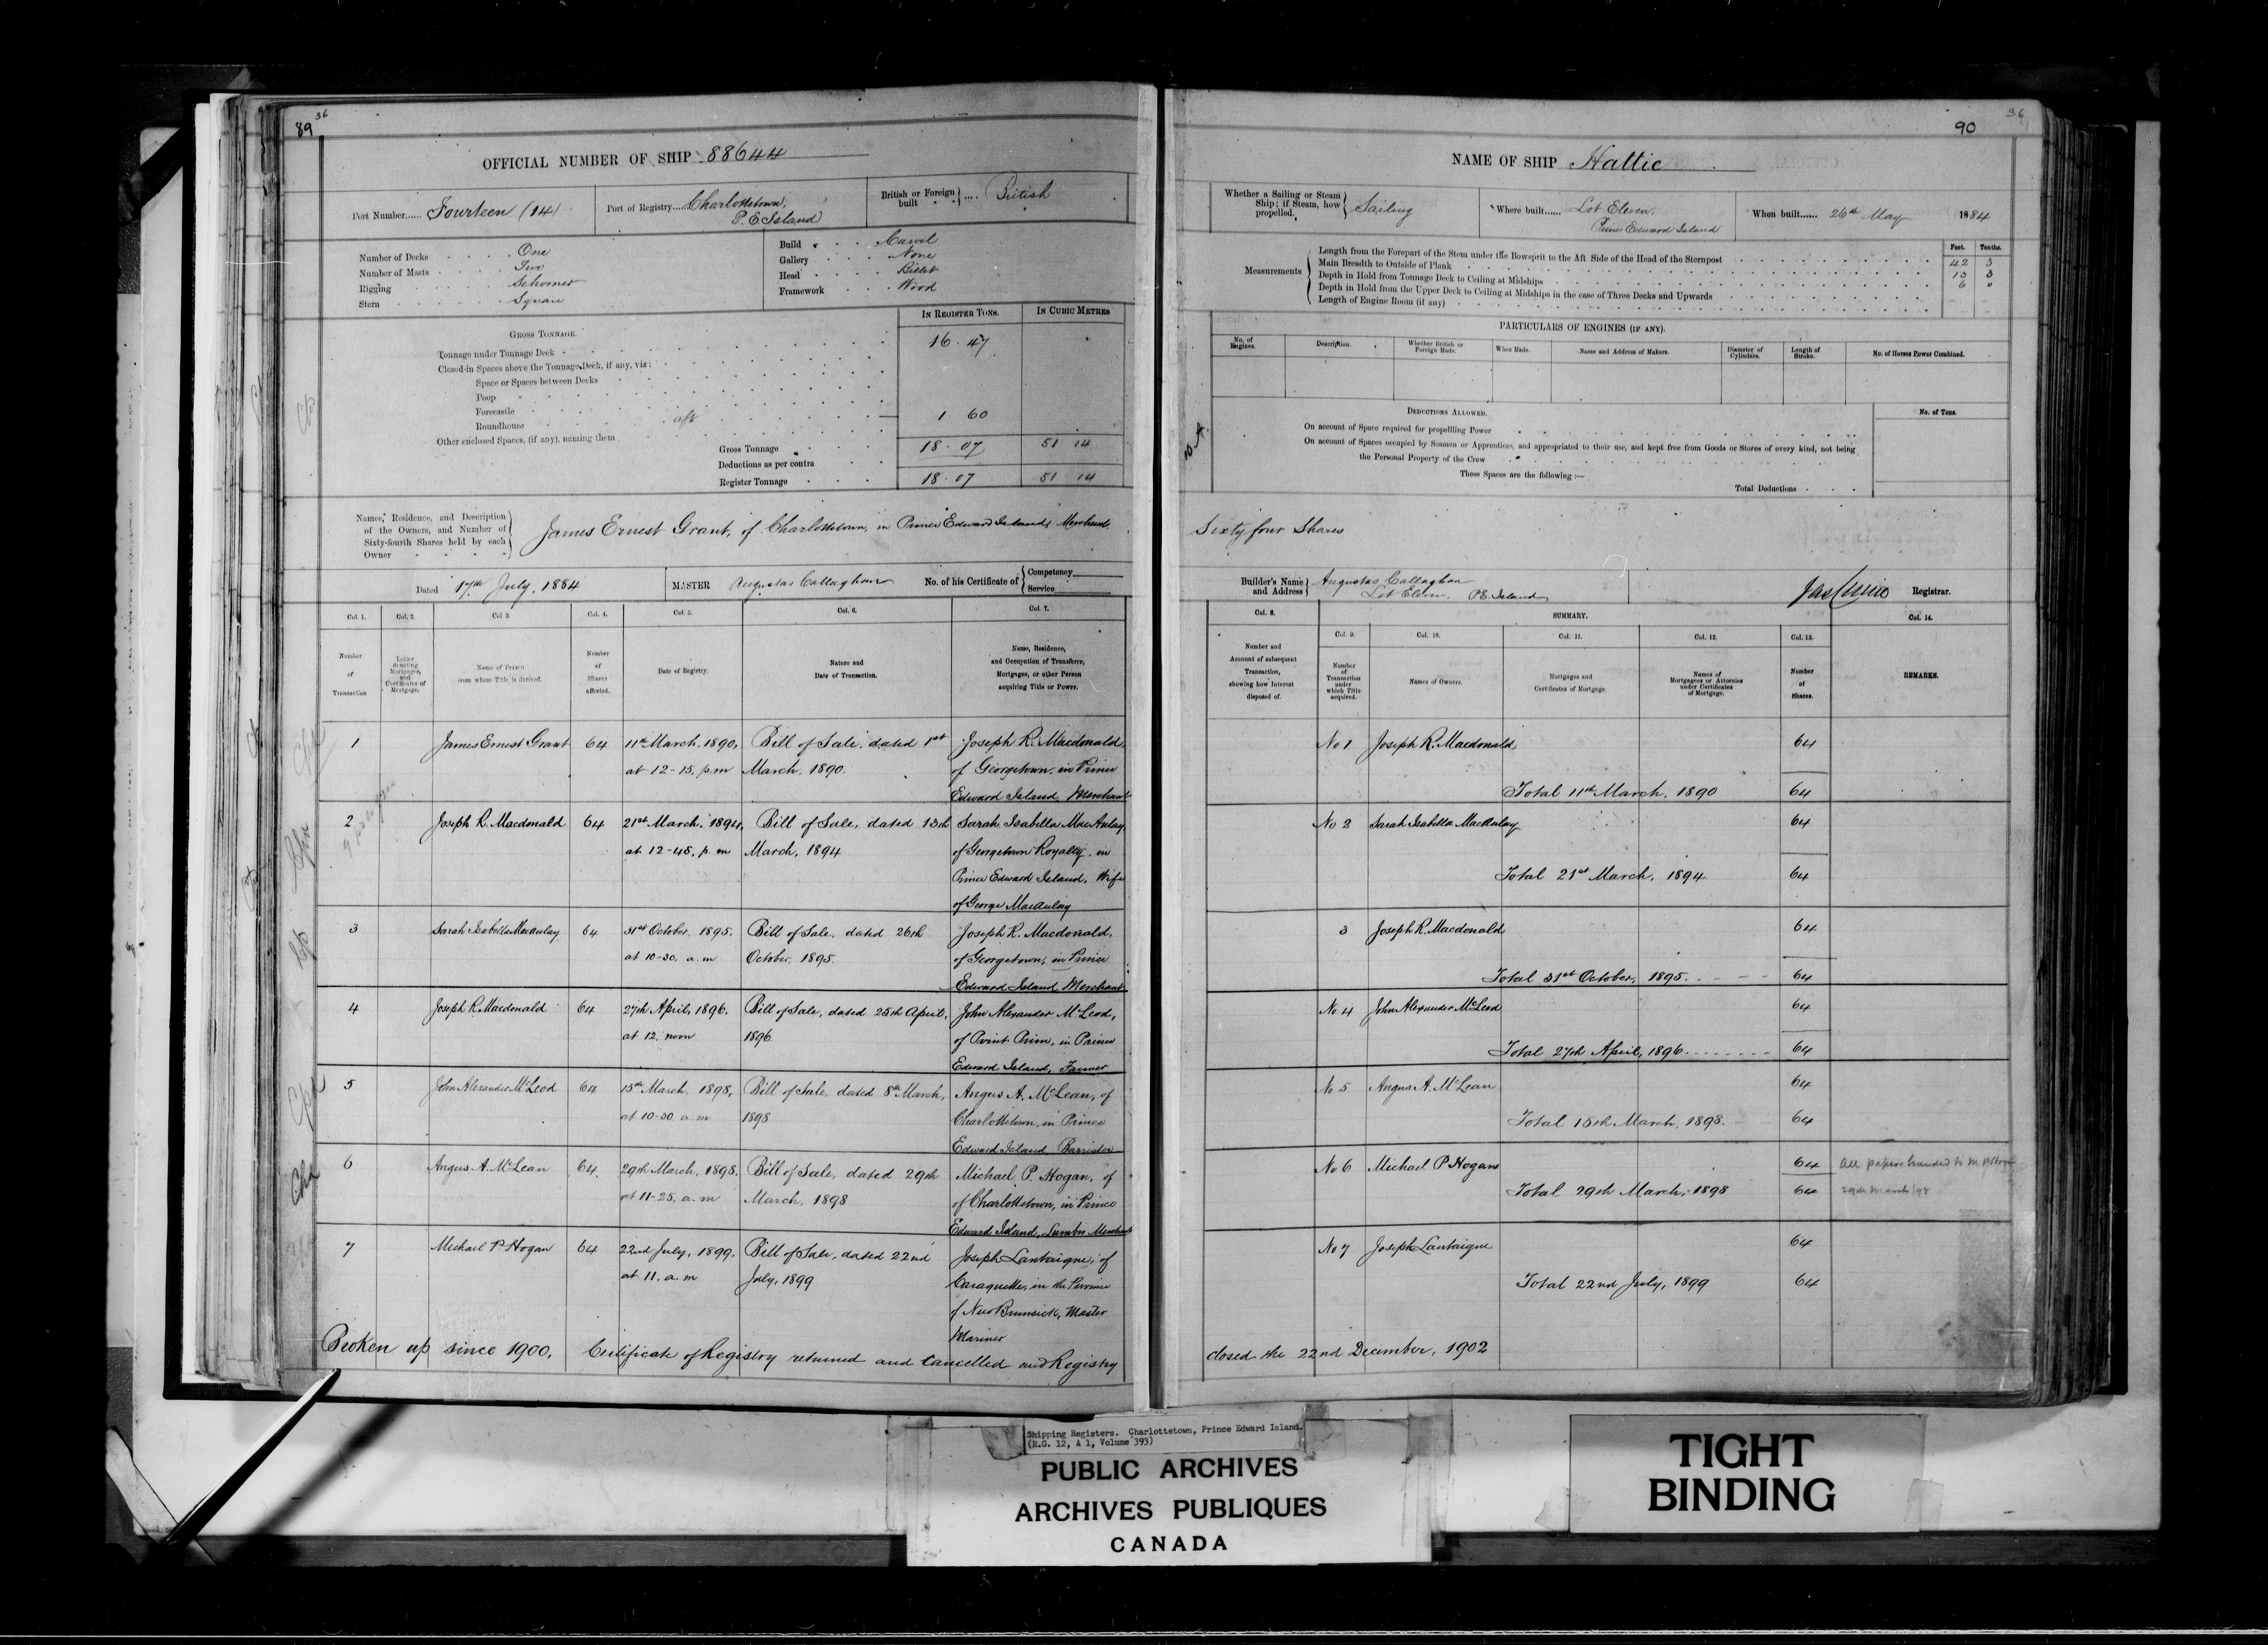 89
36
OFFICIAL NUMBER OF SHIP 88644
Port Number...... Fourteen (14)
Port of Registry.... Charlottetown,
P. E Island
British or Foreign built .... British
Number of Decks One
Number of Masts Two
Rigging Schooner
Stern Square
Build Carvel
Gallery None
Head Billet
Framework Wood
GROSS TONNAGE.
IN REGISTER TONS.
IN CUBIC METRES
Tonnage under Tonnage Deck 16.47
Closed-in Spaces above the Tonnage Deck, if any, viz:
Space or Spaces between Decks
Poop
Forecastle
Roundhouse aft 1 60
Other enclosed Spaces, (if any), naming them
Gross Tonnage 18.07 51 14
Deductions as per contra
Register Tonnage 18.07 51 14
Names, Residence, and Description
of the Owners, and Number of
Sixty-fourth Shares held by each
Owner
James Ernest Grant, of Charlottetown, in Prince Edward Island, Merchant
Dated 17th July, 1884
MASTER Augustas Callaghan
No. of his Certificate of Competency
Service
Col. 1. Col. 2. Col 3. Col. 4. Col. 5. Col. 6. Col. 7.
Number of Transaction
Letter denoting Mortgages, and Certificates of Mortgage.
Name of Person from whom Title is derived.
Number of Shares affected.
Date of Registry.
Nature and Date of Transaction.
Name, Residence, and Occupation of Transferee, Mortgagee, or other Person acquiring Title or Power.
1 James Ernest Grant 64 11th March, 1890, Bill of Sale, dated 1st Joseph R. Macdonald,
at 12-15, p.m March, 1890. of Georgetown, in Prince
Edward Island, Merchant
2 Joseph R. Macdonald 64 21st March, 1894, Bill of Sale, dated 13th Sarah Isabella MacAulay
at 12-45, p.m March, 1894 of Georgetown Royalty, in
Prince Edward Island, Wife
of George MacAulay
3 Sarah Isabella MacAulay 64 31st October, 1895. Bill of Sale, dated 26th Joseph R. Macdonald,
at 10-30, a.m October, 1895. of Georgetown, in Prince
Edward Island Merchant
4 Joseph R. Macdonald 64 27th April, 1896. Bill of Sale, dated 25th April, John Alexander McLeod,
at 12. noon 1896 of Point Prim, in Prince
Edward Island, Farmer
5 John Alexander McLeod 64 15th March, 1898, Bill of Sale, dated 8th March, Angus A. McLean, of
at 10-30 a.m 1898 Charlottetown, in Prince
Edward Island Barrister
6 Angus A. McLean 64. 29th March, 1898. Bill of Sale, dated 29th Michael P. Hogan, of
at 11-25, a.m March, 1898 of Charlottetown, in Prince
Edward Island, Lumber Merchant
7 Michael P Hogan 64 22nd July, 1899. Bill of Sale, dated 22nd Joseph Lantaigne, of
at 11. a.m July, 1899 Caraquette, in the Province
of New Brunsick, Master
Mariner
Broken up since 1900. Certificate of Registry returned and Cancelled and Registry
90
36
NAME OF SHIP Hattie
Whether a Sailing or Steam Ship; if Steam, how propelled. Sailing
Where built...... Lot Eleven,
Prince Edward Island
When built...... 26th May 1884
Measurements
Feet. Tenths.
Length from the Forepart of the Stem under the Bowsprit to the Aft Side of the Head of the Sternpost 42 3
Main Breadth to Outside of Plank 13 3
Depth in Hold from Tonnage Deck to Ceiling at Midships 6 0
Depth in Hold from the Upper Deck to Ceiling at Midships in the case of Three Decks and Upwards
Length of Engine Room (if any)
PARTICULARS OF ENGINES (IF ANY).
No. of Engines.
Description.
Whether British or Foreign Made.
When Made.
Name and Address of Makers.
Diameter of Cylinders.
Length of Stroke.
No. of Horses Power Combined.
DEDUCTIONS ALLOWED.
No. of Tons.
On account of Space required for propelling Power
On account of Spaces occupied by Seamen or Apprentices, and appropriated to their use, and kept free from Goods or Stores of every kind, not being
the Personal Property of the Crew
These Spaces are the following :—
Total Deductions
Sixty four Shares
Builder's Name and Address Augustas Callaghan
Lot Eleven, P.E. Island
Registrar.
Col. 8. SUMMARY. Col. 14.
Col. 9. Col. 10. Col. 11. Col. 12. Col. 13.
Number and Account of subsequent Transaction, showing how Interest disposed of.
Number of Transaction under which Title acquired.
Names of Owners.
Mortgages and Certificates of Mortgage.
Names of Mortgagees or Attornies under Certificates of Mortgage.
Number of Shares.
REMARKS.
No 1 Joseph R. Macdonald 64
Total 11th March, 1890 64
No 2 Sarah Isabella MacAulay 64
Total 21st March, 1894 64
3 Joseph R. Macdonald 64
Total 31st October, 1895. 64
No 4 John Alexander McLeod 64
Total 27th April, 1896 64
No 5 Angus A. McLean 64
Total 15th March, 1898. 64
No 6 Michael P Hogan 64 All papers handed to M P Hogan
Total 29th March, 1898 64 29th March/98
No 7 Joseph Lantaigne 64
Total 22nd July, 1899 64
closed the 22nd December, 1902
Shipping Registers. Charlottetown, Prince Edward Island.
(R.G. 12, A 1, Volume 393)
PUBLIC ARCHIVES
ARCHIVES PUBLIQUES
CANADA
TIGHT
BINDING